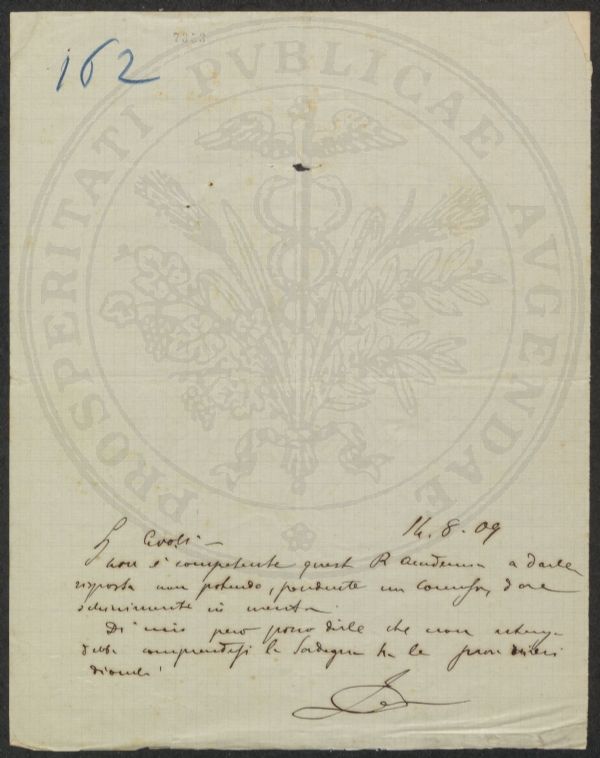 162
7353
PROSPERITATI PVBLICAE AVGENDAE
14. 8. 09
non è competente quest R Accademia a darle
risposta non potendo, pendente un concorso, dare
schiarimenti in merito.
Di mio però posso dirle che non
debba comprendersi la Sardegna tra le